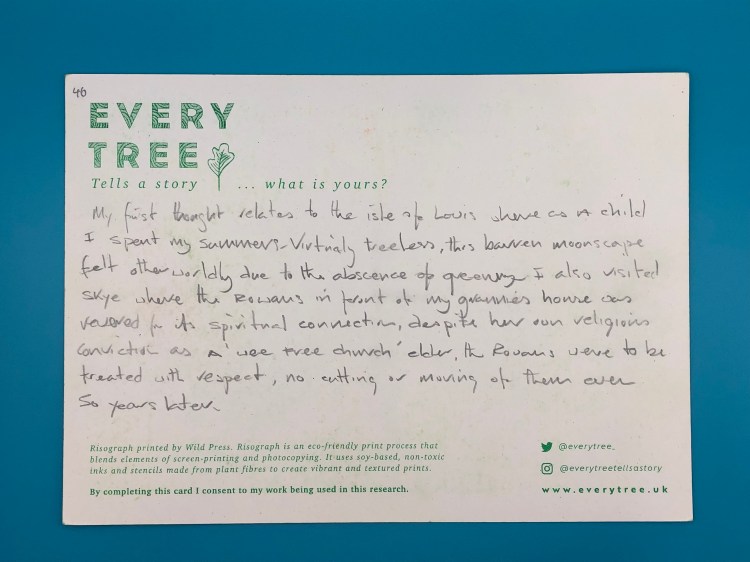 46
EVERY
TREE
Tells a story ... what is yours?
My first thought relates to the isle of Louis where as a child
I spent my summers - Virtualy treeless, this barren moonscape
felt otherworldly due to the abscence of greenery I also visited
Skye where the Rowans in front of my grannies house was
revered for its spiritual connection, despite her own religious
conviction as a 'wee free church' elder, the Rowans were to be
treated with respect, no cutting or moving of them even
50 years later.
Risograph printed by Wild Press. Risograph is an eco-friendly print process that
blends elements of screen-printing and photocopying. It uses soy-based, non-toxic
inks and stencils made from plant fibres to create vibrant and textured prints.
By completing this card I consent to my work being used in this research.
@everytree_
@everytreetellsastory
www.everytree.uk